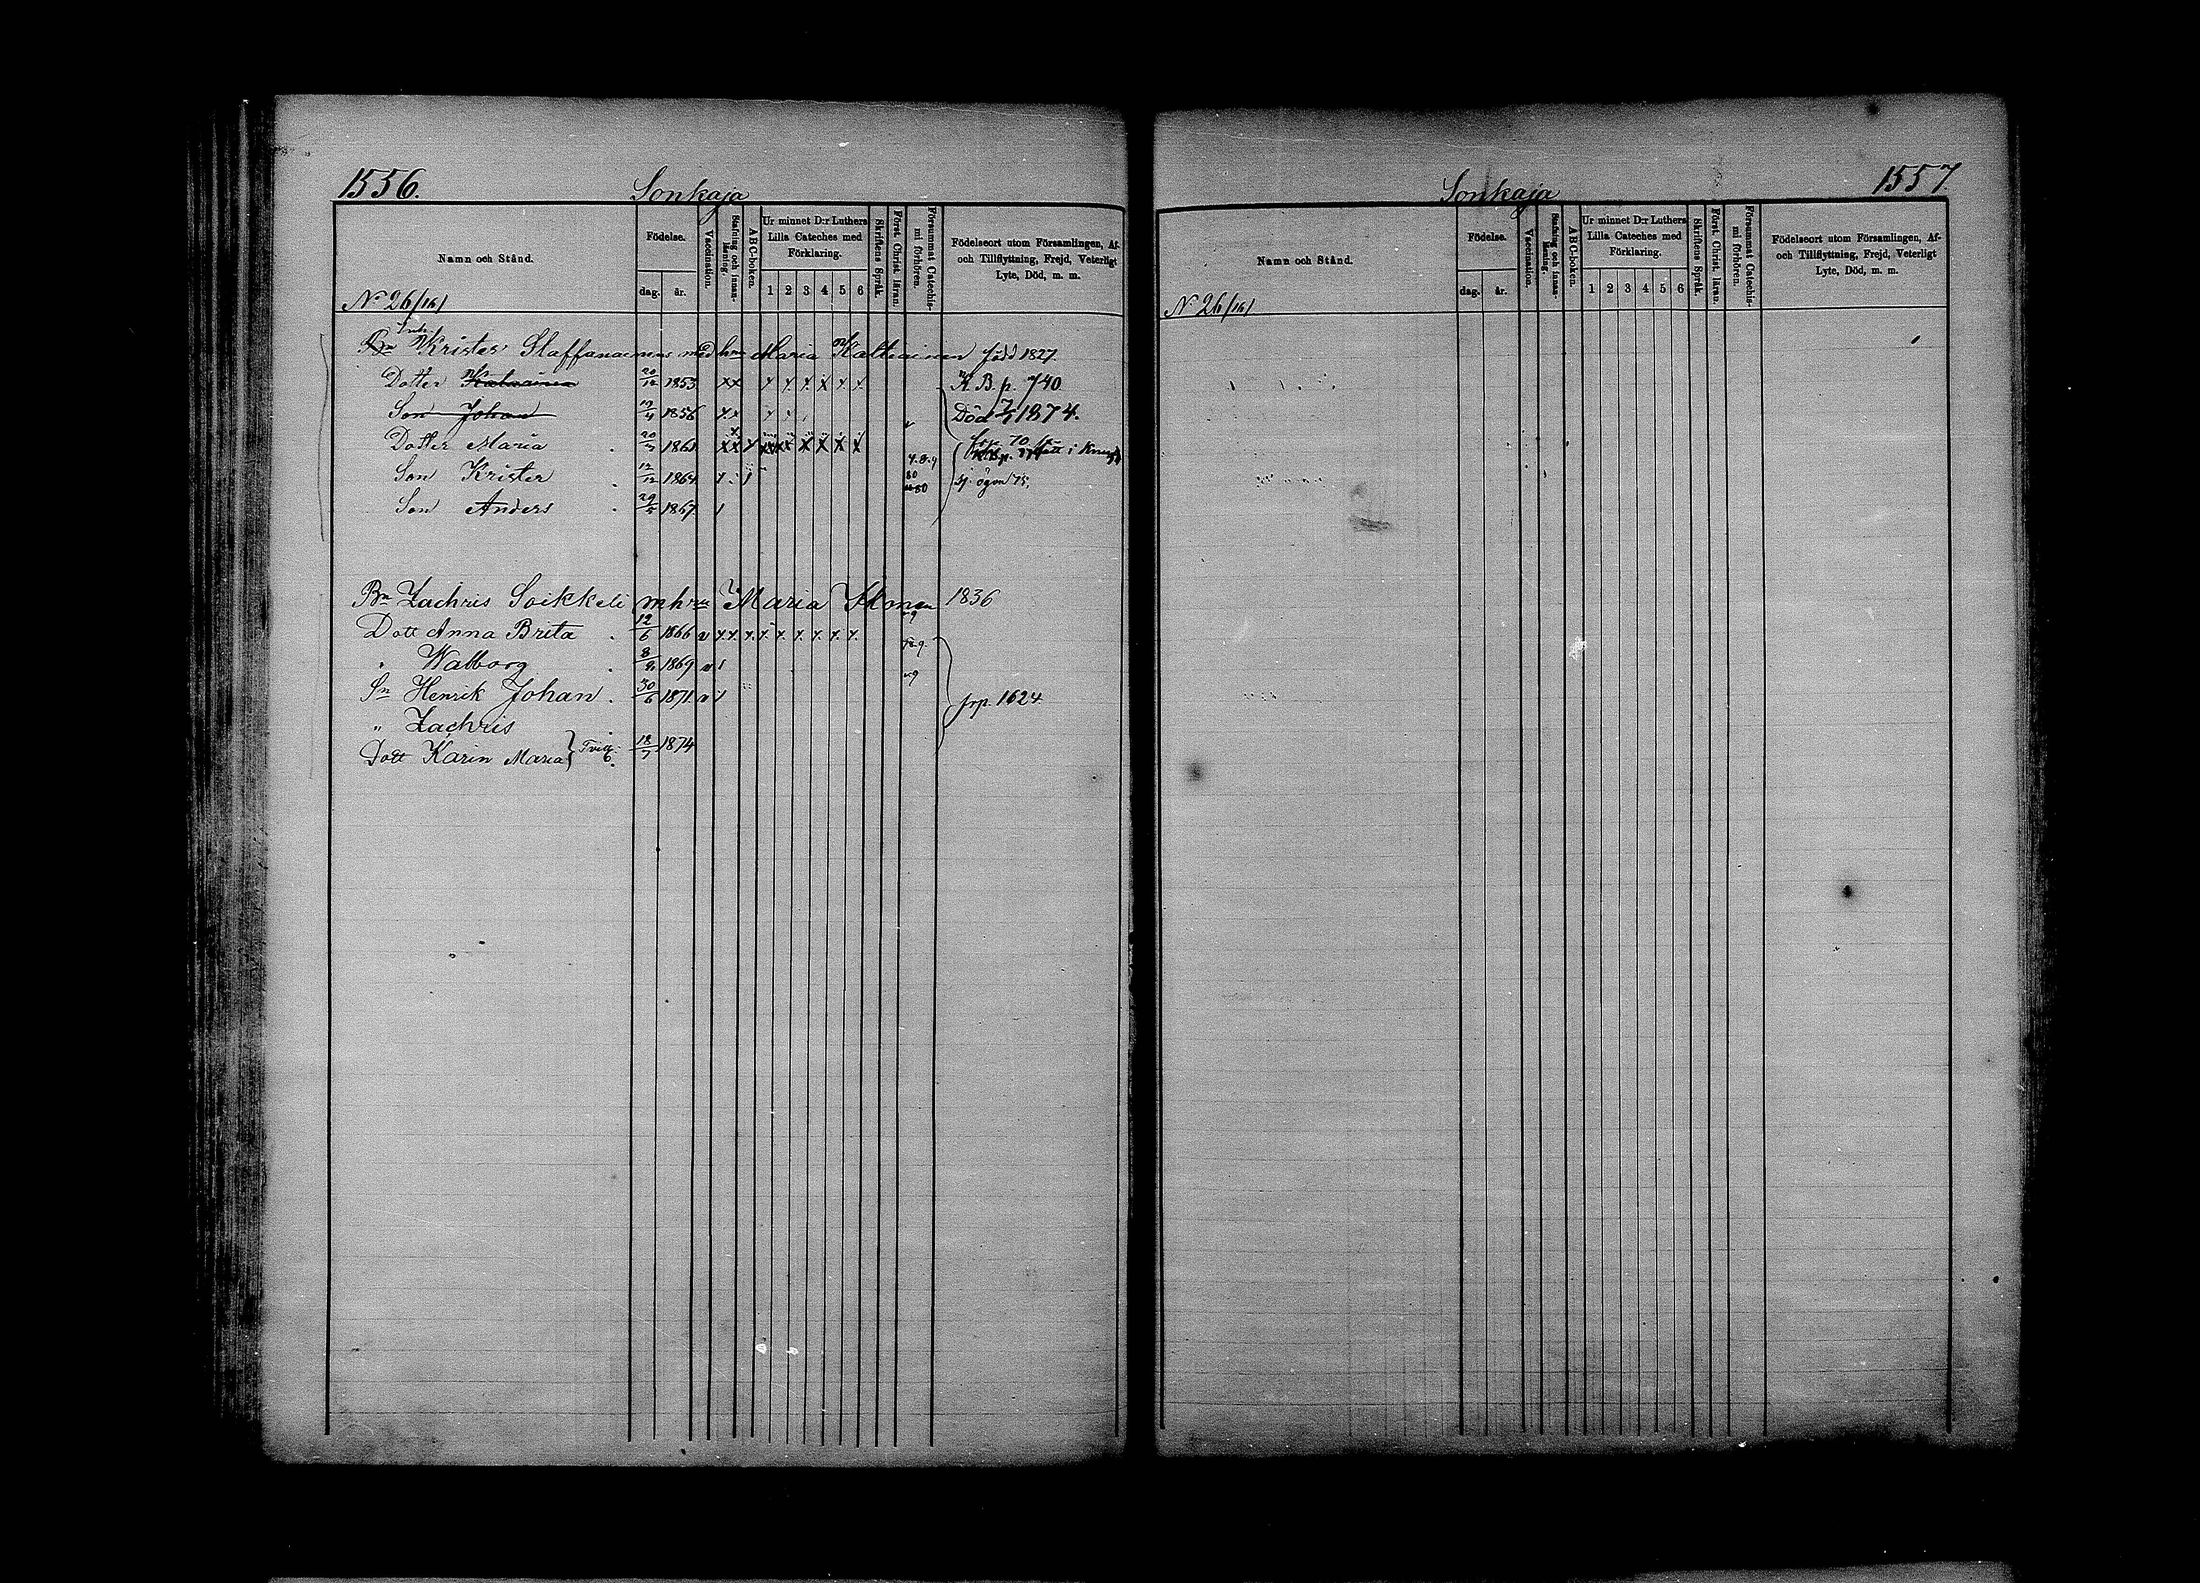 1556.
Sonkaja
Namn och Stånd.
Födelse.
dag. år.
Vaccination.
Stafning och innanläsning.
ABC-boken.
Ur minnet D:r Luthers Lilla Cateches med Förklaring.
1 2 3 4 5 6
Skriftens Språk.
Först. Christ. läran.
Försummat Catechismi förhören.
Födelseort utom Församlingen, Af- och Tillflyttning, Frejd, Veterligt Lyte, Död, m. m.
No 26/16/
Krister Staffanainens med hru Maria Kaltiainen född 1827.
Dotter Katarina 20/12 1853 K. B. p. 740
Son Johan 1856 Död 1874.
Dotter Maria 1861 frp. 70
Son Krister 12/12 1864 80 sj. ögon 75.
Son Anders 1867
Bn Zachris Soikkeli m hru Maria Ikonen 1836
Dott Anna Brita 12/6 1866
" Walborg 1869
Sn Henrik Johan 30/6 1871 frp. 1624
" Zachris
Dott Karin Maria } Tvill. 18/7 1874
Sonkaja
1557.
Namn och Stånd.
Födelse.
dag. år.
Vaccination.
Stafning och innanläsning.
ABC-boken.
Ur minnet D:r Luthers Lilla Cateches med Förklaring.
1 2 3 4 5 6
Skriftens Språk.
Först. Christ. läran.
Försummat Catechismi förhören.
Födelseort utom Församlingen, Af- och Tillflyttning, Frejd, Veterligt Lyte, Död, m. m.
No 26/16/